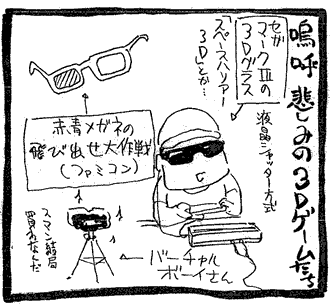 嗚呼 悲しみの3Dゲームたち
セガ
マークⅢの
3Dグラス
「スペースハリアー
3D」とか…
液晶シャッター方式
赤青メガネの
飛び出せ大作戦
(ファミコン)
バーチャル
ボーイさん
スマン結局
買わなんだ